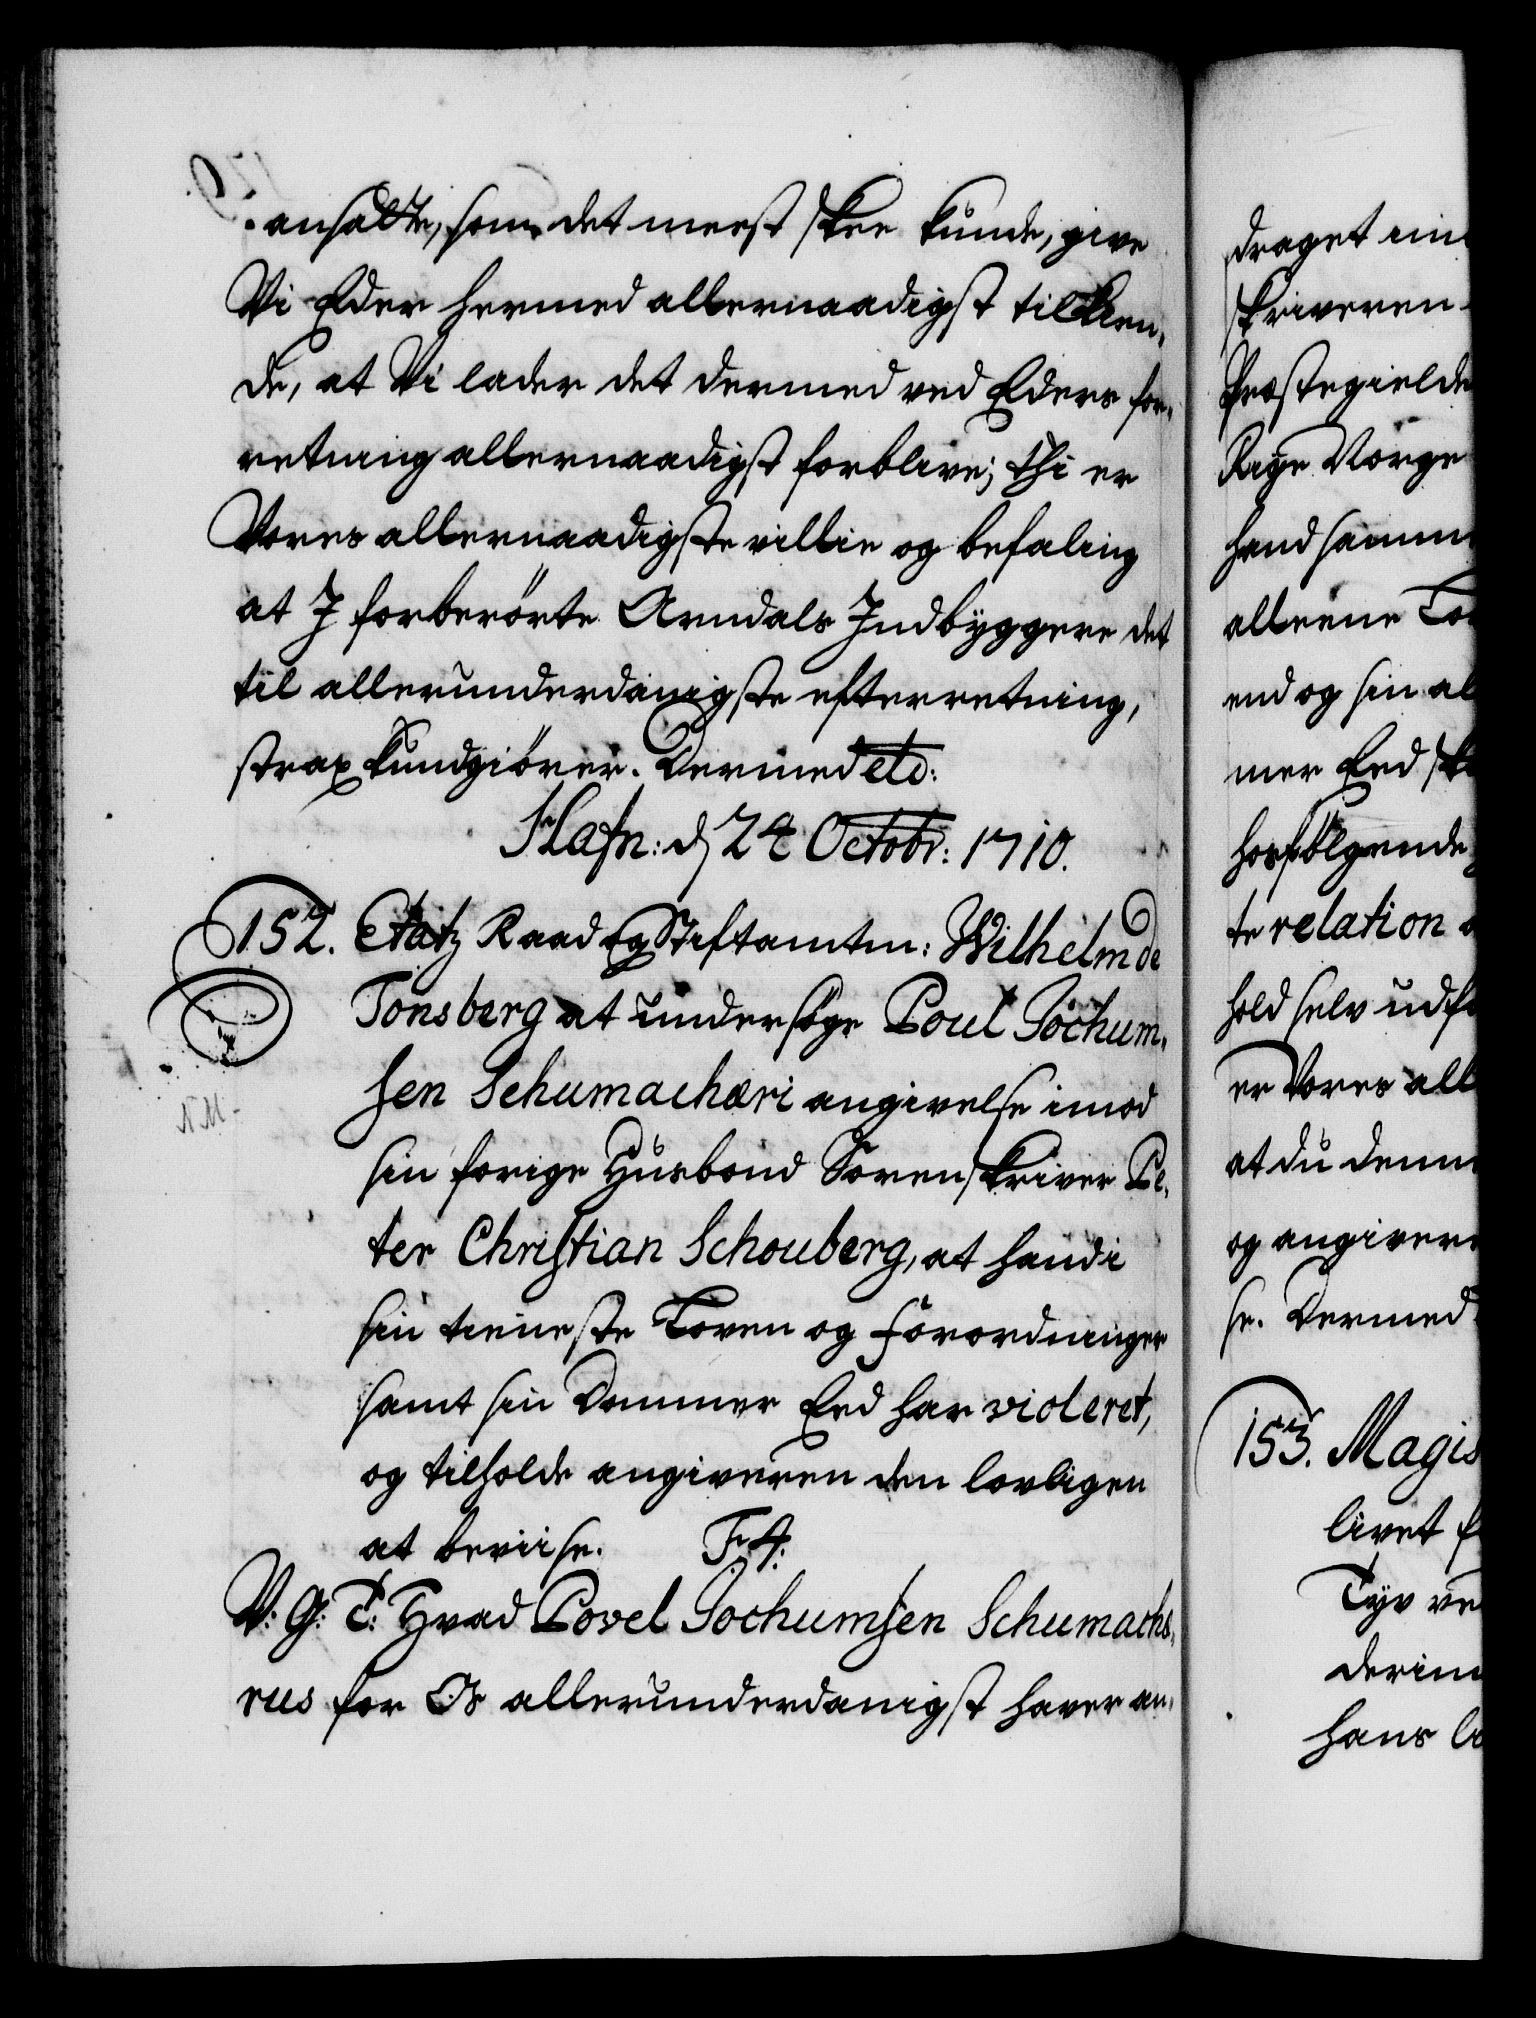 anholte, som det meest skee kunde, give
Vi Eder hermed allernaadigst tilkien-
de, at Vi lader det dermed ved Eders for-
retning allernaadigst forblive; thi er
Vores allernaadigste villie og befaling
at I forberörte Arndals Indbyggere det
til allerunderdanigste efterretning,
strax kundgiörer. Dermed etc:
Hafn: d 24 Octobr: 1710.
152. Etatz Raad og Stiftamtm: Wilhelm de
Tonsberg at undersöge Poul Jochum-
sen Schumachæri angivelse imod
sin forige Husbond Sorenskriver Pe-
ter Christian Schouberg, at hand i
sin tieneste Loven og Forordninger
samt sin Dommer Eed har violeret,
og tilholde angiveren den lovligen
at beviise. F 4:
V: G: T: Hvad Povel Jochumsen Schumachæ-
rus for Os allerunderdanigst haver an-
N M
draget
skriveren
Præstegielde
Rige Norge
hand samme
alleene
end og sin al
mer Eed
hosfölgende
te relation
hold selv
er Vores all
at du denne
og angivere
se. Dermed
153. Magis
livet
Tyv
hans